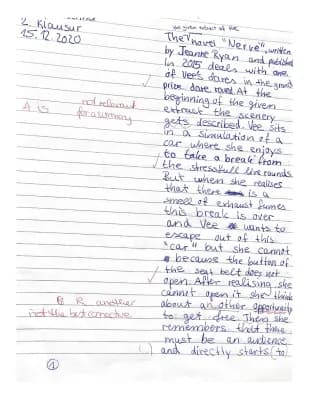 2. Klausur
15.12.2020
the given extract of the
The novel "Nerve", written
by Jeanne Ryan and published
in 2015 deals with one
of Vee's dares in the grand
prize dare round. At the
beginning of the given
extract the scenery
gets described. Vee sits
in a simulation of a
car where she enjoys
to take a break from
the stressfull live rounds.
But when she realises
that there is a
smell of exhaust fumes
this break is over
and Vee wants to
escape out of this
"car" but she cannot
because the button of
the seat belt does not
open. After realising she
cannot open it she thinks
about an other opportunity
to get free. Then she
remembers that there
must be an audience
and directly starts (to
A IS not relevant
for a summary
R another
not the best connective
(.)
1